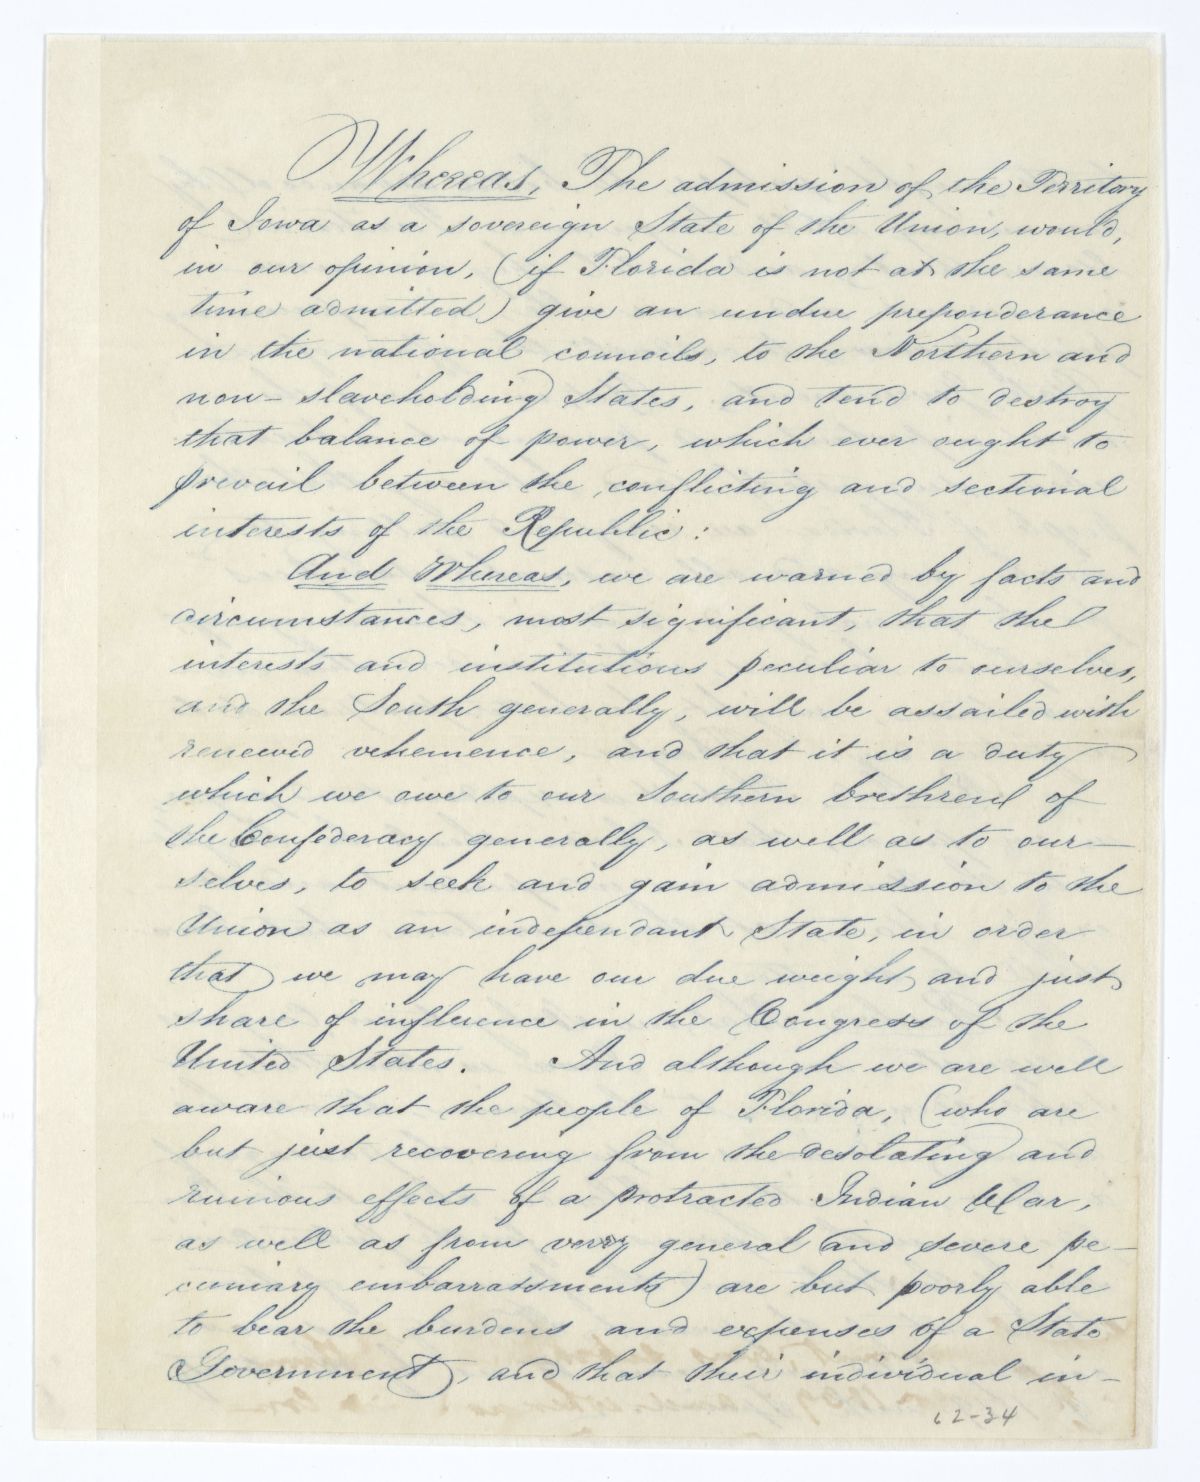 Whereas, The admission of the Territory
of Iowa as a sovereign State of the Union, would,
in our opinion, (if Florida is not at the same
time admitted) give an undue preponderance
in the national councils, to the Northern and
non-slaveholding States, and tend to destroy
that balance of power, which ever ought to
prevail between the conflicting and sectional
interests of the Republic:
And Whereas, we are warned by facts and
circumstances, most significant, that the
interests and institutions peculiar to ourselves,
and the South generally, will be assailed with
renewed vehemence, and that it is a duty
which we owe to our Southern brethren of
the Confederacy generally, as well as to our-
selves, to seek and gain admission to the
Union as an independant State, in order
that we may have our due weight and just
share of influence in the Congress of the
United States. And although we are well
aware that the people of Florida, (who are
but just recovering from the desolating and
ruinous effects of a protracted Indian War,
as well as from very general and severe pe-
cuniary embarrassments) are but poorly able
to bear the burdens and expenses of a State
Government, and that their individual in-
62-34